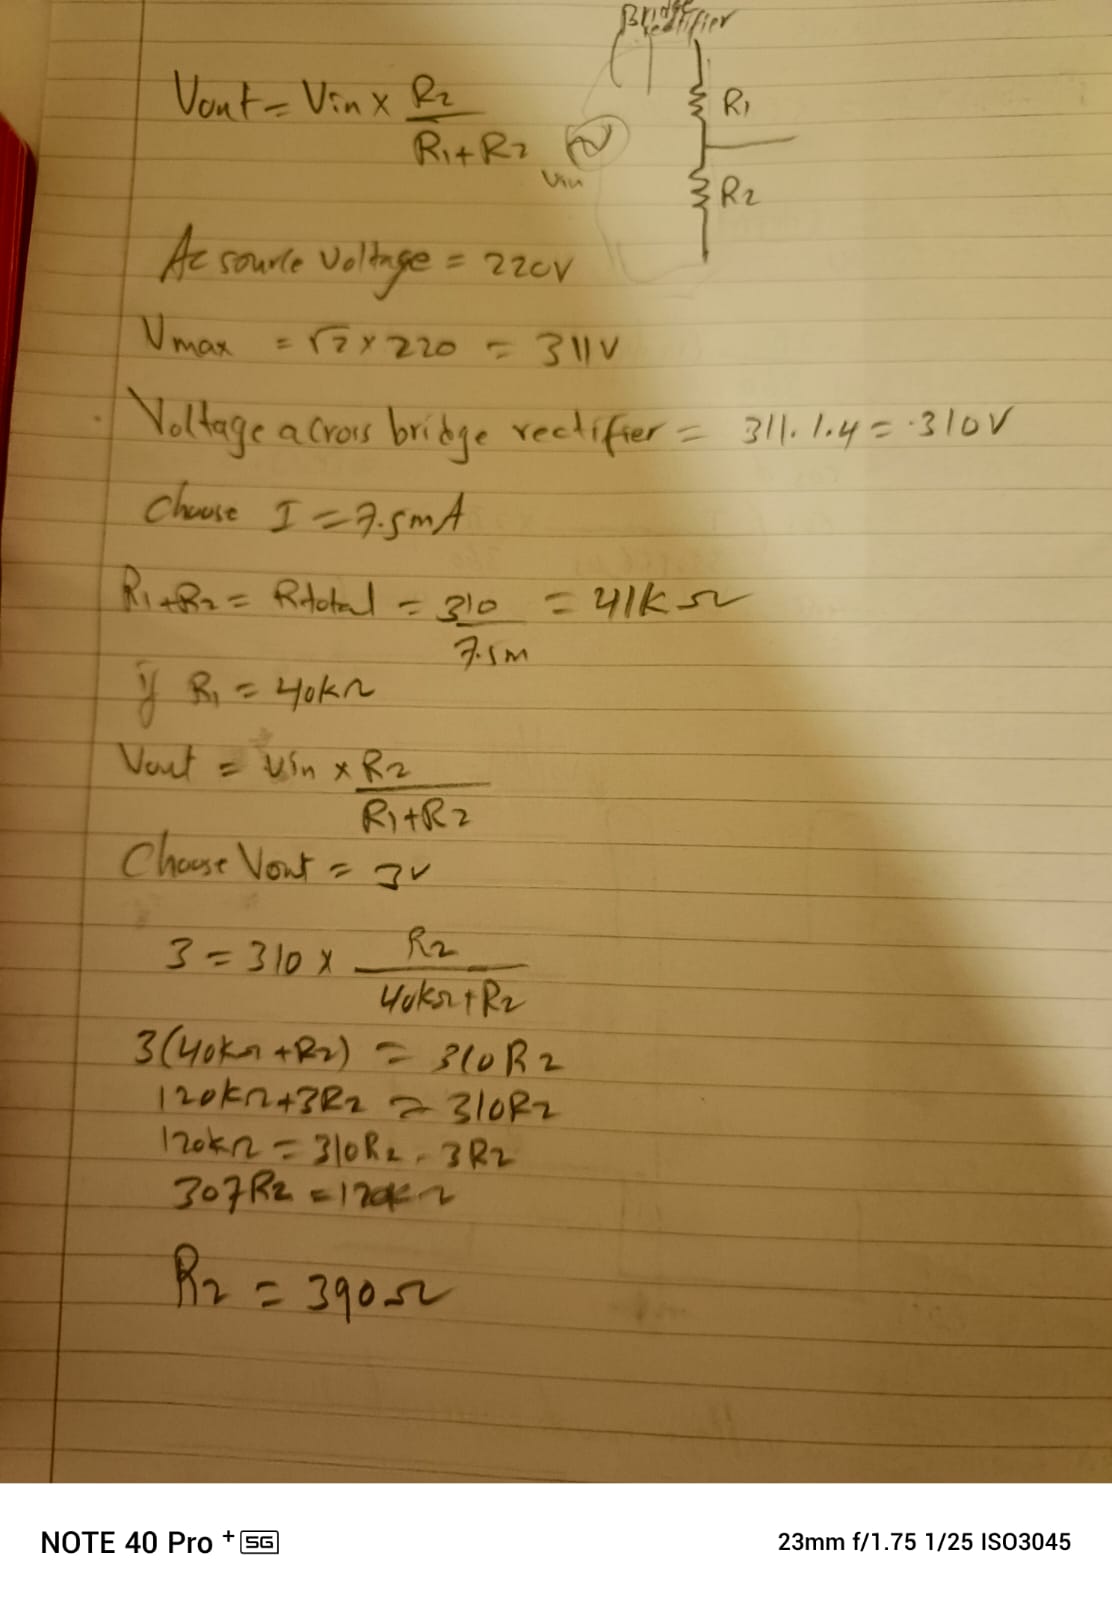 Bridge
rectifier
Vout = Vin x R2
R1+R2
Vin
R1
R2
Ac source voltage = 220V
Vmax = √2 x 220 = 311V
Voltage across bridge rectifier = 311-1.4 = 310V
Choose I = 7.5mA
R1+R2 = Rtotal = 310 = 41KΩ
7.5m
if R1 = 40kΩ
Vout = Vin x R2
R1+R2
Choose Vout = 3V
3 = 310 x R2
40kΩ+R2
3(40kΩ+R2) = 310R2
120kΩ+3R2 = 310R2
120kΩ = 310R2 - 3R2
307R2 = 120kΩ
R2 = 390Ω
NOTE 40 Pro+ 5G
23mm f/1.75 1/25 ISO3045